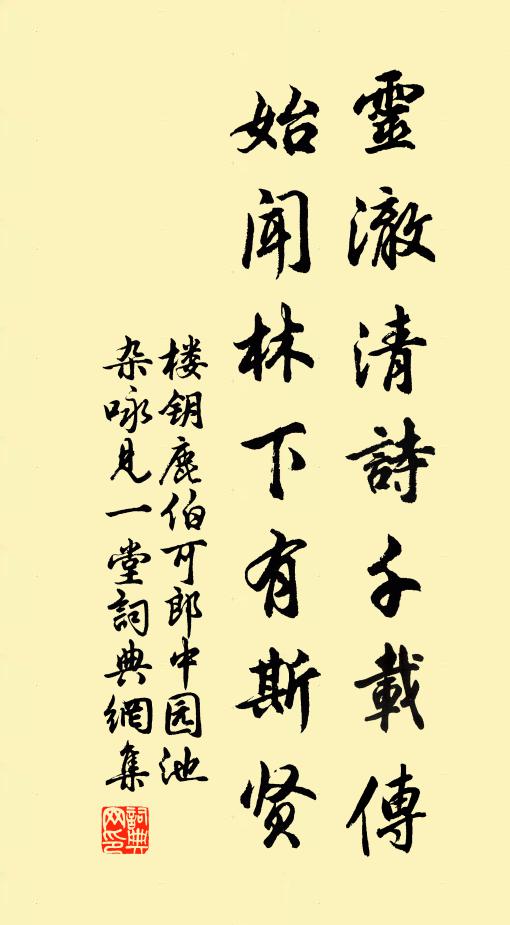 靈澈清詩千載傳
始闻林下有斯贤
楼钥鹿伯可郎中园池
杂咏见一堂詞典網集
詞典
网印